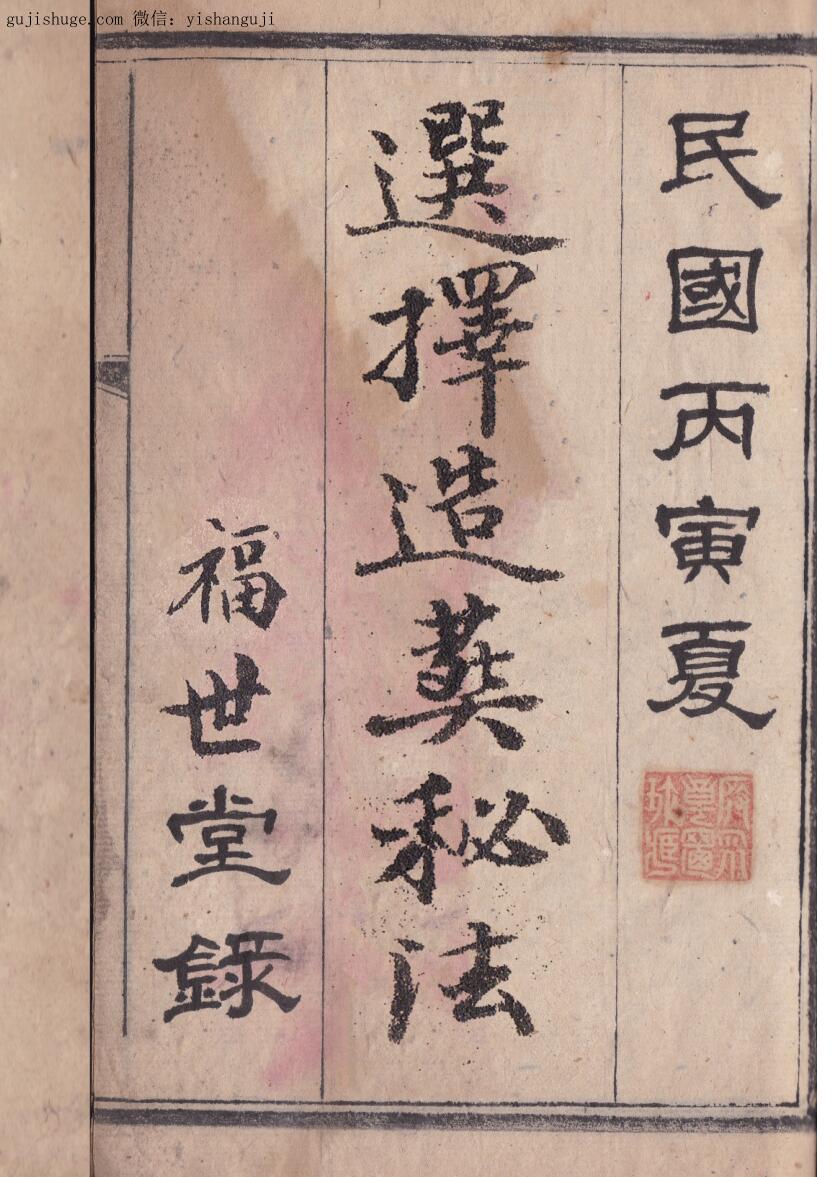 gujishuge.com 微信：yishanguji
民國丙寅夏
選擇造葬秘法
福世堂錄